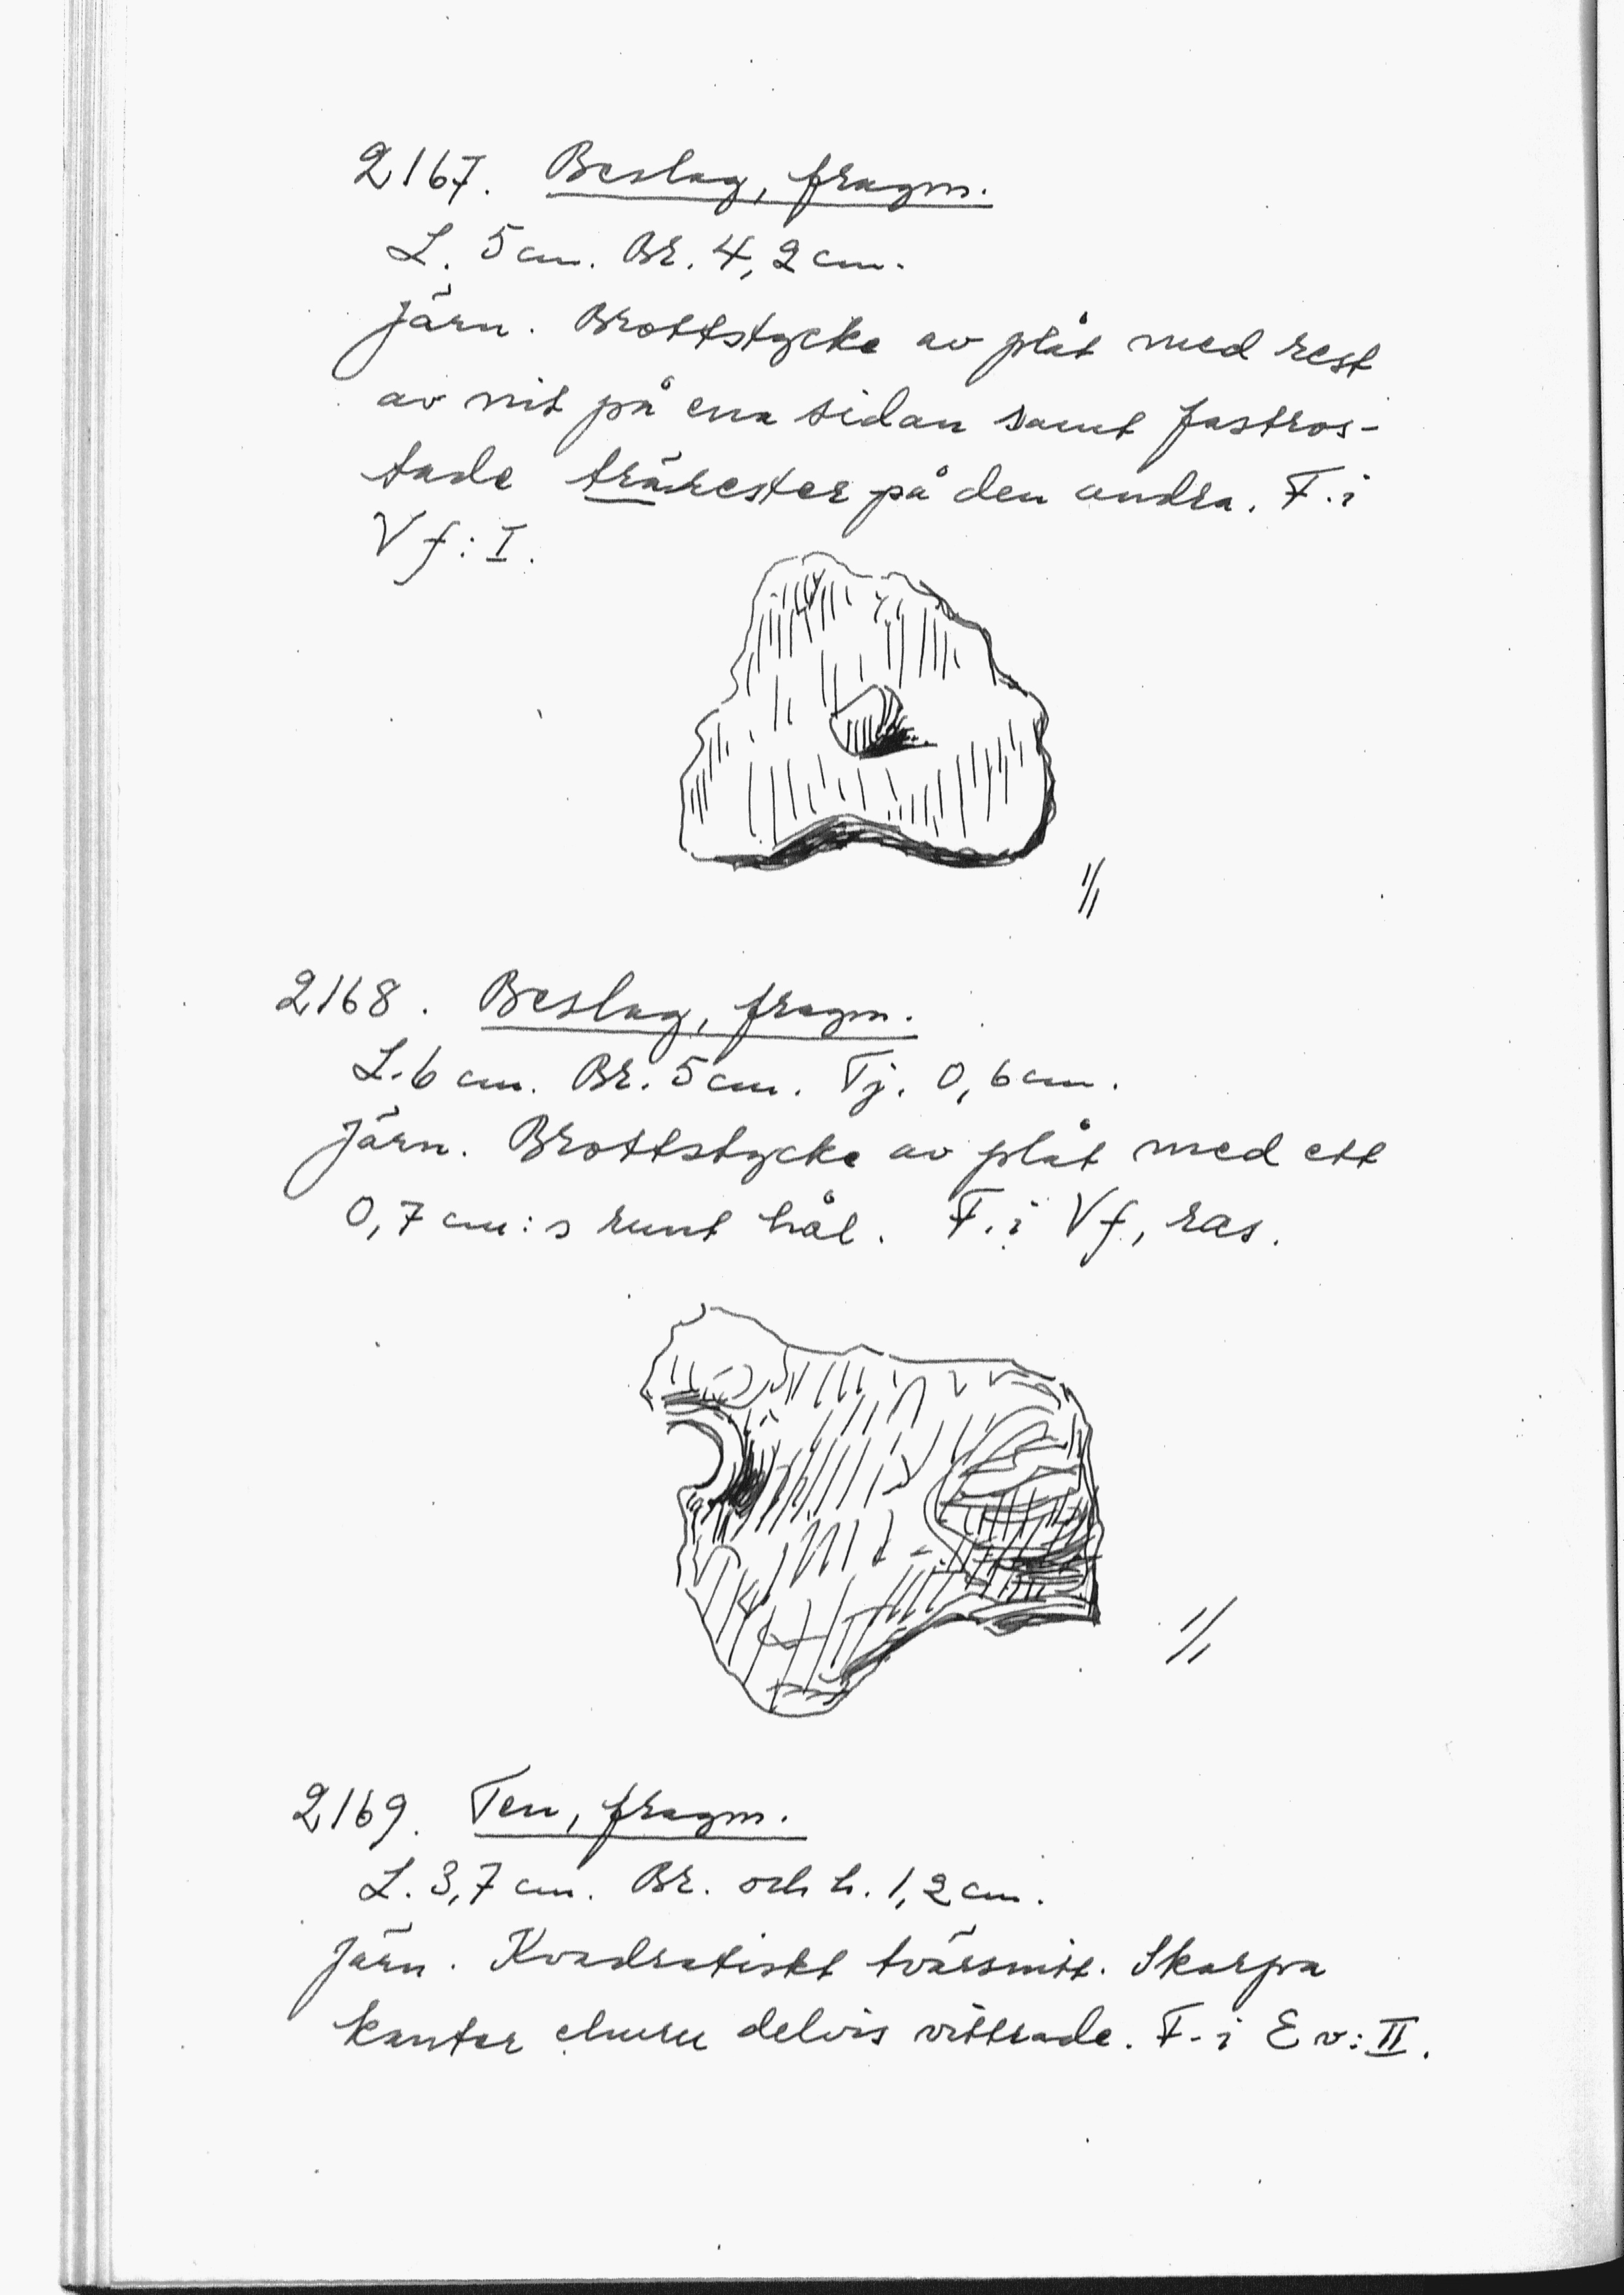 2167. Beslag, fragm.
L. 5 cm. Br. 4,2 cm.
Järn. Brottstycke av plåt med rest
av nit på ena sidan samt fastros-
tade trärester på den andra. F. i
Vf: I.
1/1
2168. Beslag, fragm.
L. 6 cm. Br. 5 cm. Tj. 0,6 cm.
Järn. Brottstycke av plåt med ett
0,7 cm:s runt hål. F. i Vf, ras.
1/1
2169. Ten, fragm.
L. 3,7 cm. Br. och h. 1,2 cm.
Järn. Kvadratiskt tvärsnitt. Skarpa
kanter ehuru delvis vittrade. F. i Ev: II.